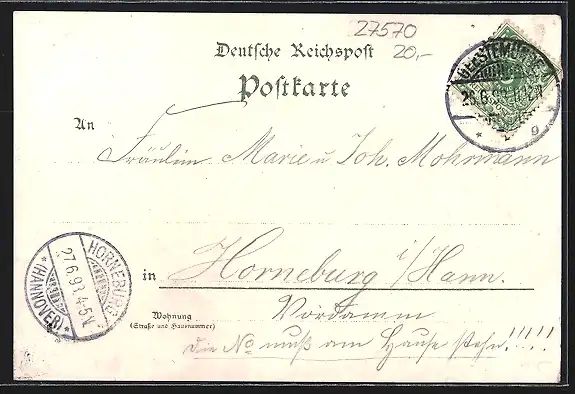 27570
20,-
Deutsche Reichspost
Postkarte
GEESTEMÜNDE
26.6.98
g
An
Fräulein Marie u Joh. Mohrmann
in Horneburg i/Hann.
Wohnung
(Straße und Hausnummer)
Vordamm
die No muß am Hause stehn!!!!
HORNEBURG
27.6.98.4-5V.
*(HANNOVER)*